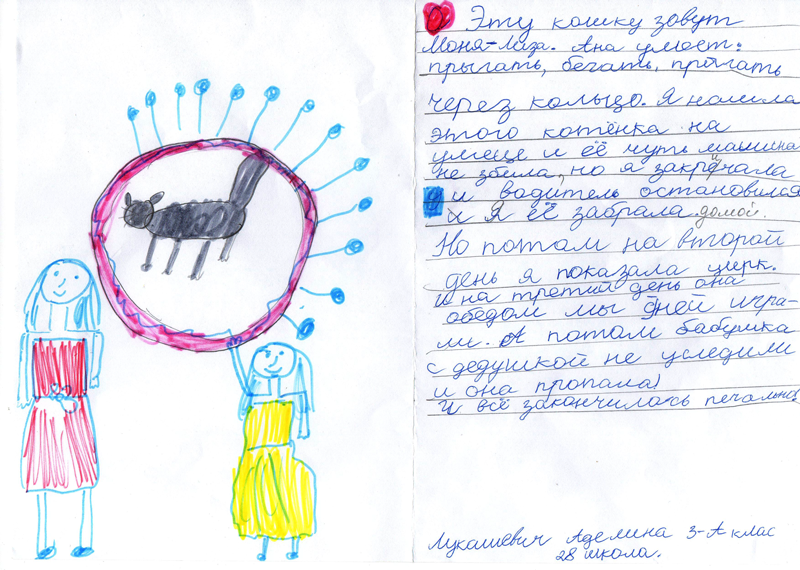 Эту кошку зовут
Моня-Лиза. Ана умеет:
прыгать, бегать, прыгать
через кольцо. Я нашла
этого котёнка на
улеце и её чуть машина
не збила, но я закричала
и водитель остановился
и Я её забрала домой.
Но потам на второй
день я показала цирк.
И на третий день она
обедом мы с ней игра-
ли. А потом бабушка
с дедушкой не уследили
и она пропала!
И всё закончилась печально!
Лукашевич Аделина 3-А клас
28 школа.